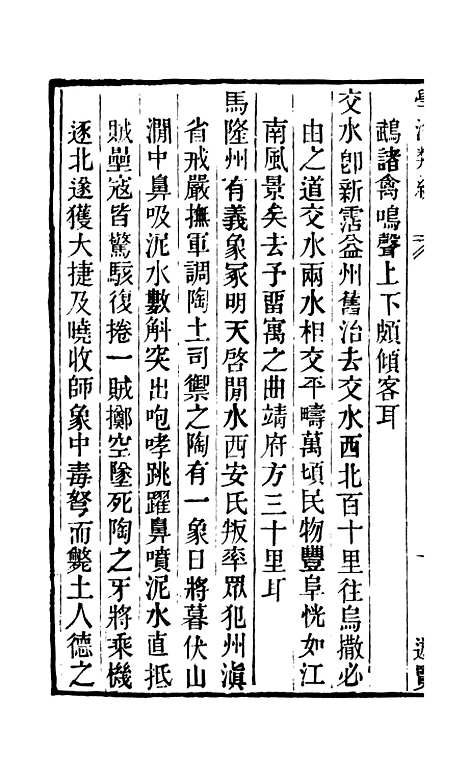 鵡諸禽鳴聲上下頗傾客耳
交水卽新霑益州舊治去交水西北百十里往烏撒必
由之道交水兩水相交平疇萬頃民物豐阜恍如江
南風景矣去予畱寓之曲靖府方三十里耳
馬隆州有義象冢明天啓閒水西安氏叛率眾犯州滇
省戒嚴撫軍調陶土司禦之陶有一象日將暮伏山
澗中鼻吸泥水數斛突出咆哮跳躍鼻噴泥水直抵
賊壘寇皆驚駭復捲一賊擲空墜死陶之牙將乘機
逐北遂獲大捷及曉收師象中毒弩而斃土人德之